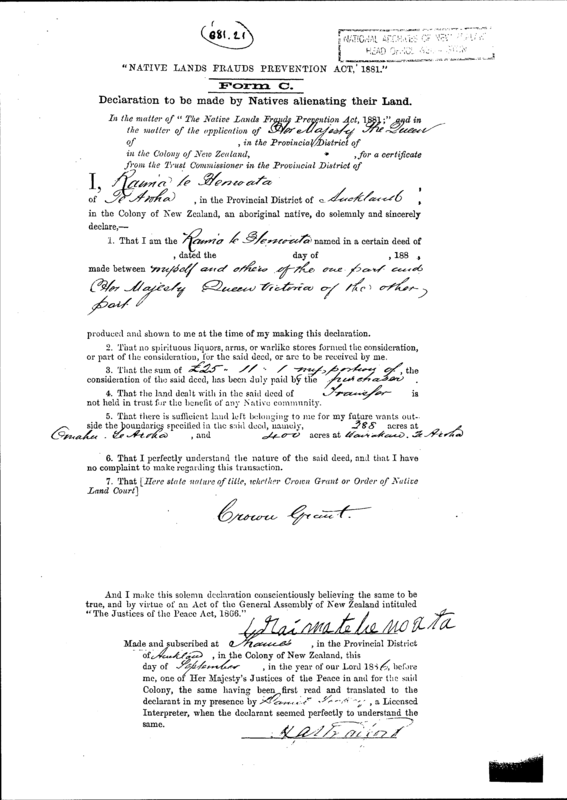 881.21
NATIONAL ARCHIVES OF NEW ZEALAND
HEAD OFFICE
"NATIVE LANDS FRAUDS PREVENTION ACT, 1881."
FORM C.
Declaration to be made by Natives alienating their Land.
In the matter of "The Native Lands Frauds Prevention Act, 1881;" and in
the matter of the application of Her Majesty The Queen
of , in the Provincial District of
in the Colony of New Zealand, * , for a certificate
from the Trust Commissioner in the Provincial District of
I, Raima te
of Te Aroha , in the Provincial District of Auckland ,
in the Colony of New Zealand, an aboriginal native, do solemnly and sincerely
declare,—
1. That I am the te named in a certain deed of
, dated the day of , 188 ,
made between myself and others of the one part and
Her Majesty Queen Victoria of the other
part
produced and shown to me at the time of my making this declaration.
2. That no spirituous liquors, arms, or warlike stores formed the consideration,
or part of the consideration, for the said deed, or are to be received by me.
3. That the sum of £25 - 11 - 1 my portion of, the
consideration of the said deed, has been duly paid by the purchaser .
4. That the land dealt with in the said deed of Transfer is
not held in trust for the benefit of any Native community.
5. That there is sufficient land left belonging to me for my future wants out-
side the boundaries specified in the said deed, namely, 288 acres at
Omahu Te Aroha , and 400 acres at Te Aroha
6. That I perfectly understand the nature of the said deed, and that I have
no complaint to make regarding this transaction.
7. That [Here state nature of title, whether Crown Grant or Order of Native
Land Court]
Crown Grant.
And I make this solemn declaration conscientiously believing the same to be
true, and by virtue of an Act of the General Assembly of New Zealand intituled
"The Justices of the Peace Act, 1866."
Made and subscribed at Thames , in the Provincial District
of Auckland , in the Colony of New Zealand, this
day of September , in the year of our Lord 1886, before
me, one of Her Majesty's Justices of the Peace in and for the said
Colony, the same having been first read and translated to the
declarant in my presence by , a Licensed
Interpreter, when the declarant seemed perfectly to understand the
same.